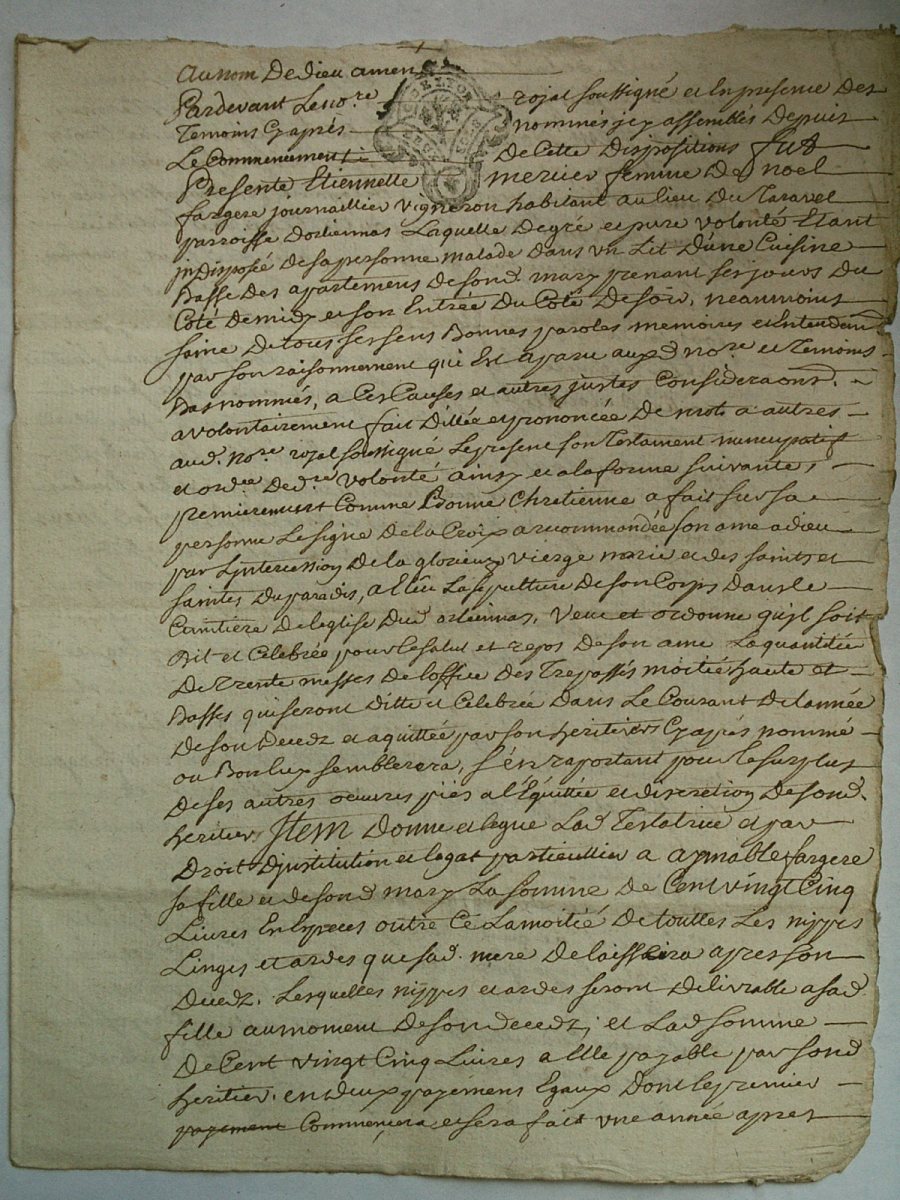 Au nom De dieu amen
Pardevant Le no.re royal soussigné et En presence Des
Temoins Cyaprés nommés jcy assemblés Depuis
Le Commencement De Cette Dispositions fut
Presente Etiennette mercier femme De noel
fargere journaillier vigneron habitant au lieu Du
parroisse Dorliennas Laquelle De gré et pure volonté Etant
jndisposée de sa personne malade dans un Lit D'une Cuisine
Basse Des apartemens de son d. mary prenant ses jours Du
Coté De midy et son Entrée Du Coté De soir, neanmoins
saine De tous ses sens Bonnes paroles memoires et Entendem.t
par son raisonnement qui Est aparu aux d. no.re et Temoins
Bas nommés, a Ces Causes et autres justes Consideraons.
a volontairement fait Dittée et prononcée De mots a autres
au d. no.re royal soussigné Le present son Testament nuncupatif
et ord.re De d.re volonté ainsy et a la forme suivante,
premierement Comme Bonne Chretienne a fait sur sa
personne Le signe De la Croix a recommandée son ame a dieu
par L'jntercession De la glorieuse vierge marie et des saints et
saintes Du paradis, a Eleu La sepulture De son Corps Dans le
Cimitiere De leglise Du d. orliennas, Veut et ordonne qu'il soit
Dit et Celebrée pour le salut et repos De son ame La quantitée
De Trente messes de L'office Des Trepassés moitié haute et
Basses qui seront Ditte et Celebrée Dans Le Courant De l'année
De son Decedz et aquittée par son heritiers Cyaprés nommé
ou Bon lux semblerera, s'en raportant pour le surplus
De ses autres oeuvres pies a l'Equittée et discretion De son d.
heritier, Jtem Donne et legue La d. Testatrice et par
Droit D'justitution et legat particullier a aymable fargere
sa fille et de son d mary La somme De Cent vingt Cinq
Livres En Especes outre Ce La moitié De touttes Les nippes
Linges et ardes que sa d. mere De laissera apres son
Decedz, Lesquelles nippes et ardes seront Delivrable a sa d
fille au moment De son decedz, et La d somme
De Cent vingt Cinq Livres a Elle payable par son d
heritier, en deux payemens Egaux Dont le premier
payement Commencera et sera fait une année apres